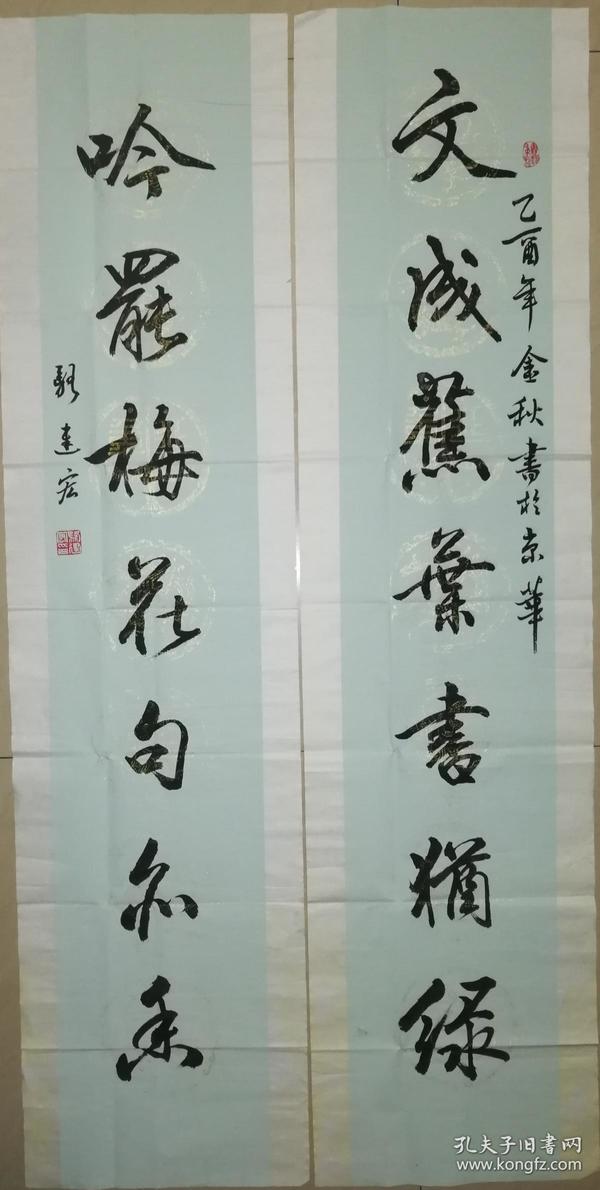 乙酉年金秋書於京華
文成蕉葉書猶绿
吟罷梅花句亦香
建宏
孔夫子旧书网
www.kongfz.com